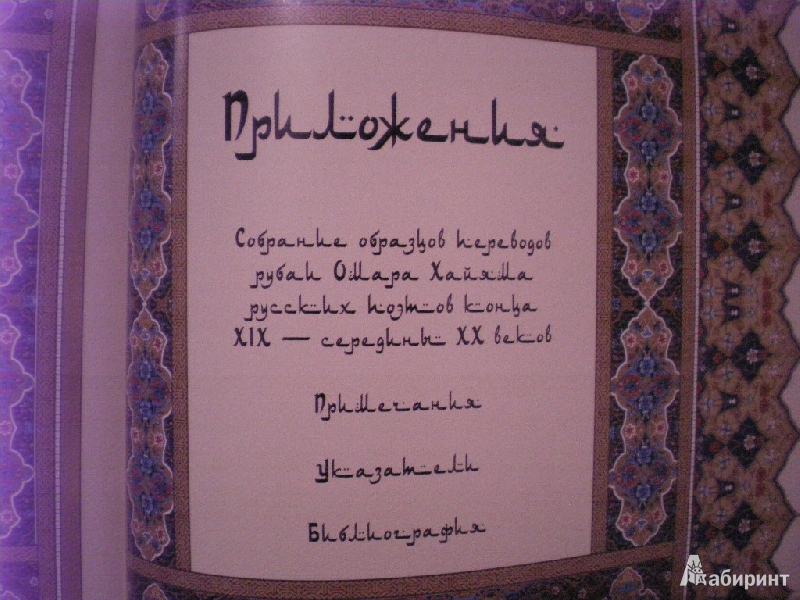 Приложения
Собрание образцов переводов
рубаи Омара Хайяма
русских поэтов конца
XIX — середины XX веков
Примечания
Указатели
Библиография
Лабиринт